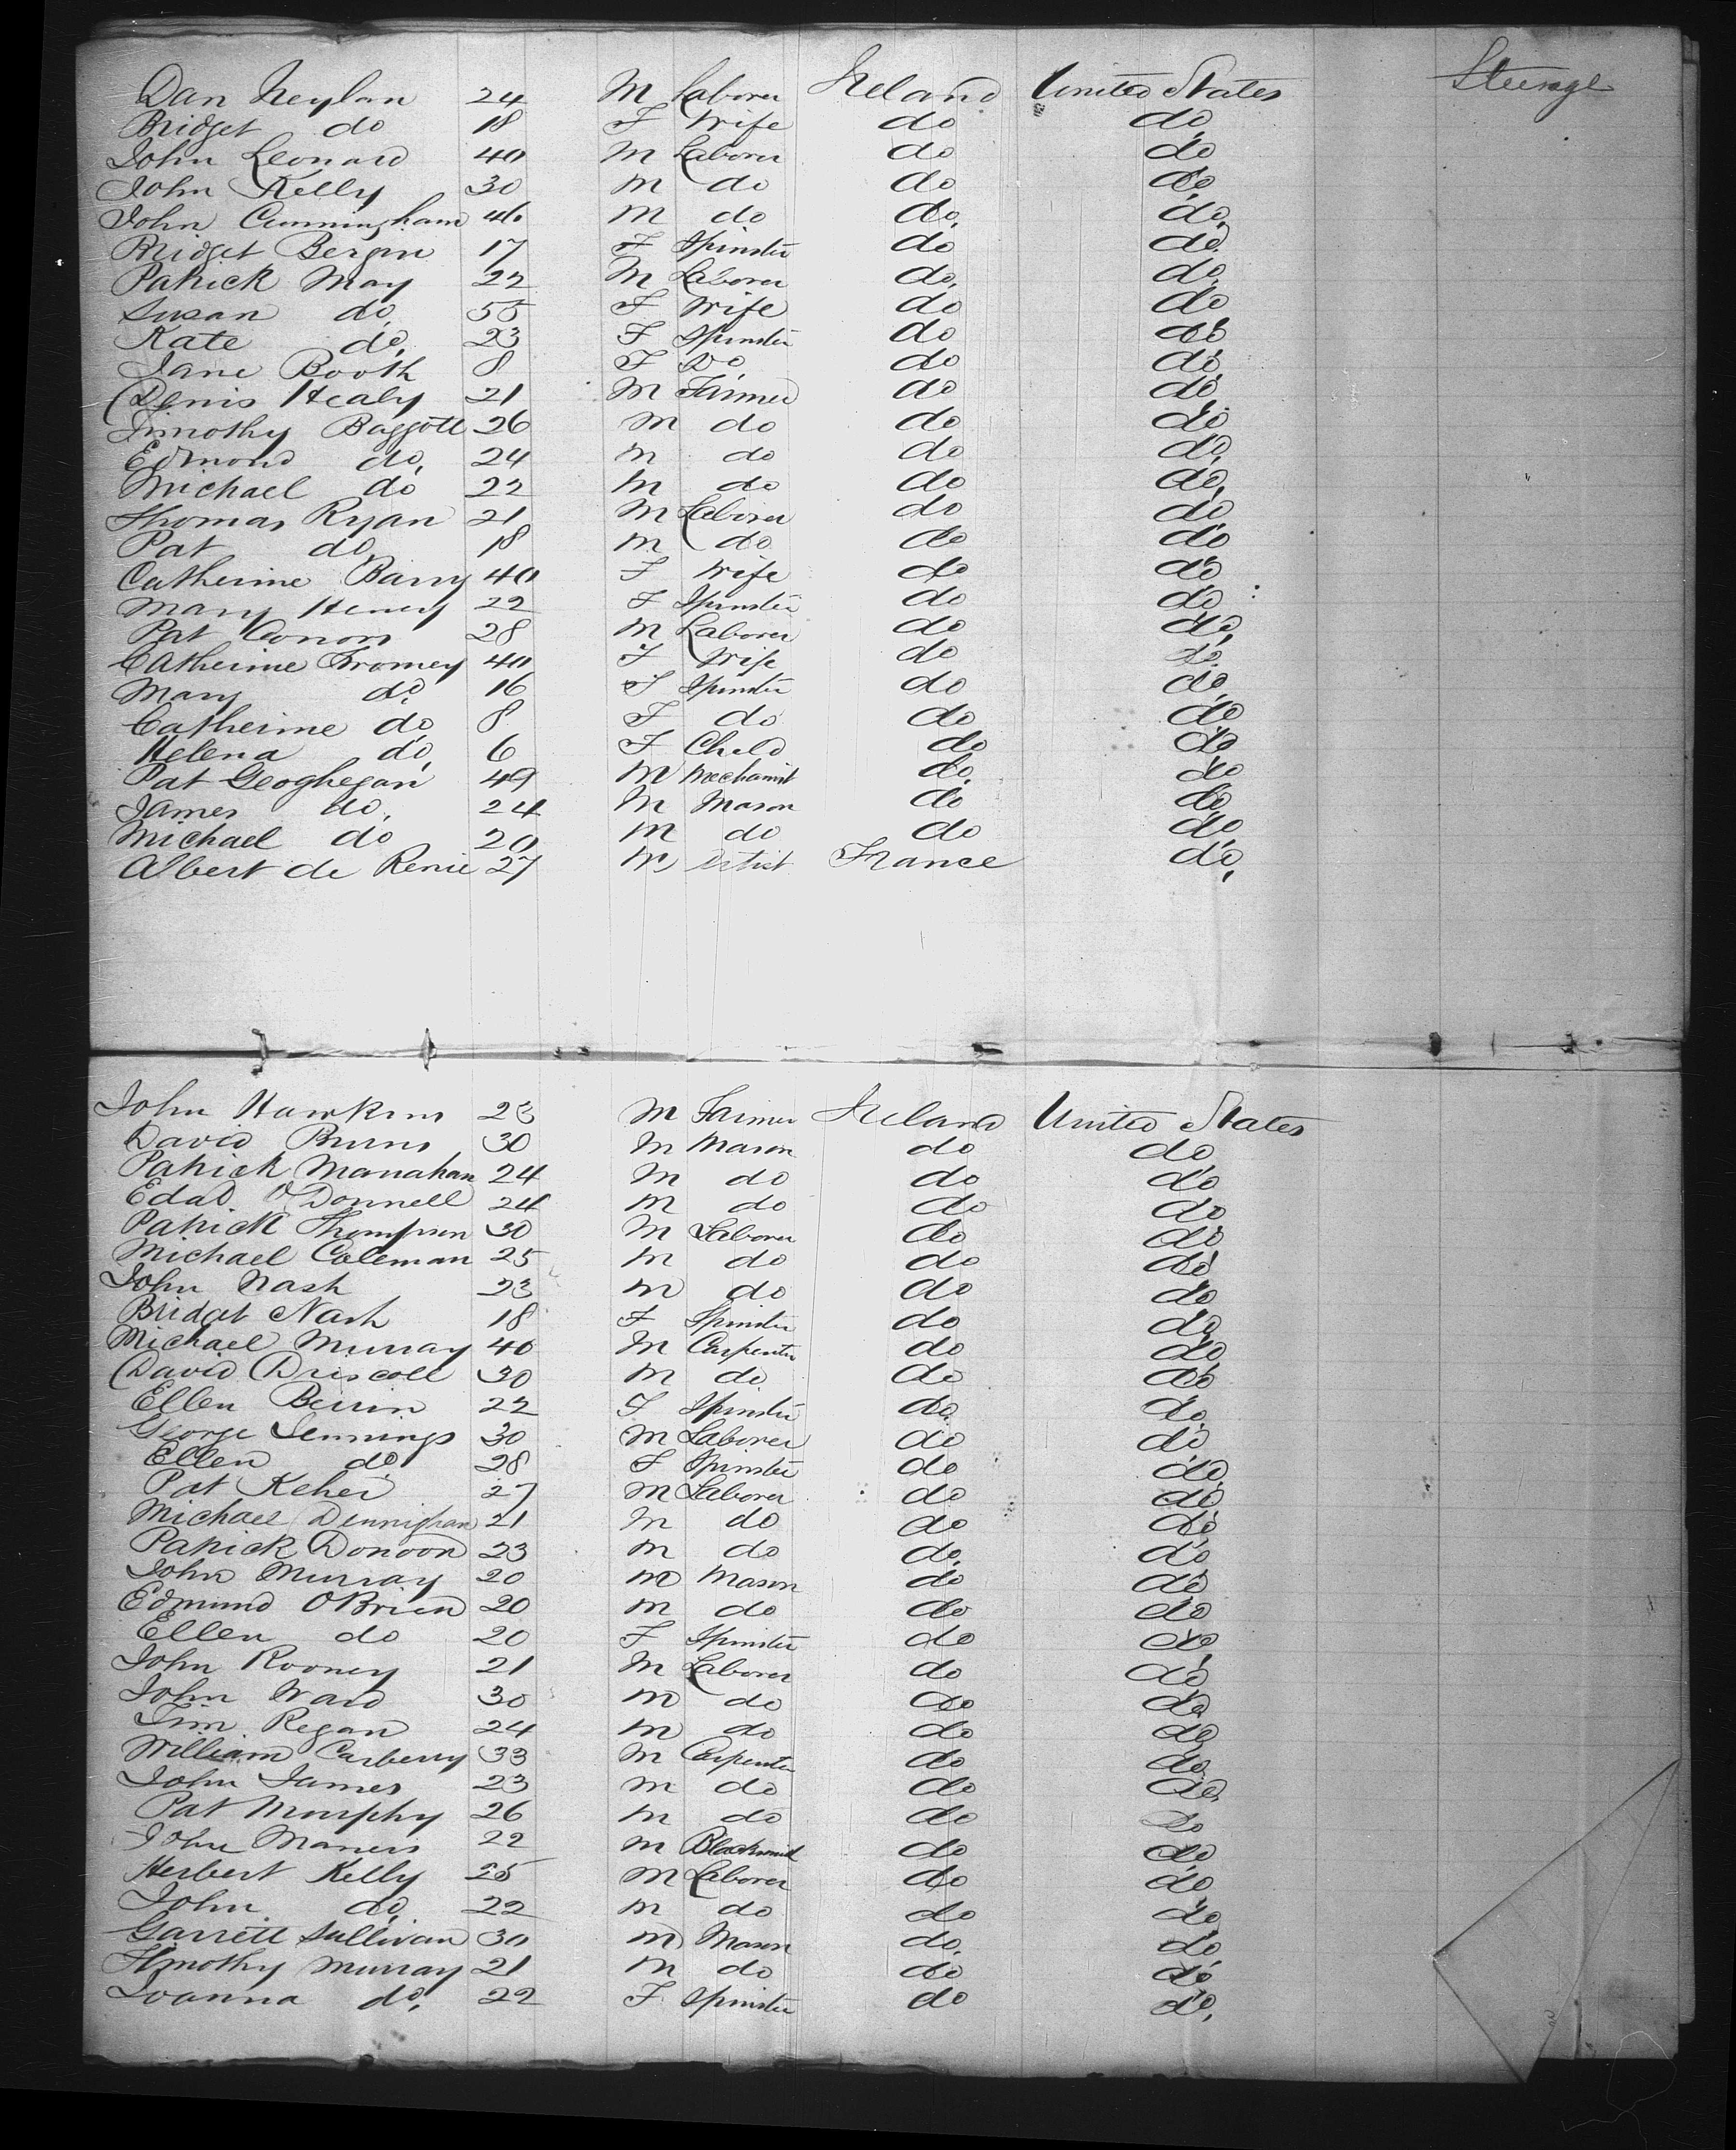 Dan Neylan 24 M Laborer Ireland United States Steerage
Bridget do 18 F Wife do do
John Leonard 40 M Laborer do do
John Kelly 30 M do do do
John Cunningham 46 M do do do
Bridget Bergin 17 F Spinster do do
Patrick May 22 M Laborer do do
Susan do 55 F Wife do do
Kate do 23 F Spinster do do
Jane Booth 8 F Do do do
Denis Healy 21 M Farmer do do
Timothy Baggott 26 M do do do
Edmond do 24 M do do do
Michael do 22 M do do do
Thomas Ryan 21 M Laborer do do
Pat do 18 M do do do
Catherine Barry 40 F Wife do do
Mary Heney 22 F Spinster do do
Pat Conors 28 M Laborer do do
Catherine Twomey 40 F Wife do do
Mary do 16 F Spinster do do
Catherine do 8 F do do do
Helena do 6 F Child do do
Pat Geoghegan 49 M Mechanist do do
James do 24 M Mason do do
Michael do 20 M do do do
Albert de Renie 27 M Artist France do
John Hawkins 23 M Farmer Ireland United States
David Burns 30 M Mason do do
Patrick Manahan 24 M do do do
Edwd O'Donnell 24 M do do do
Patrick Thompson 30 M Laborer do do
Michael Coleman 25 M do do do
John Nash 23 M do do do
Bridget Nash 18 F Spinster do do
Michael Murray 40 M Carpenter do do
David Driscoll 30 M do do do
Ellen Berrin 22 F Spinster do do
George Jennings 30 M Laborer do do
Ellen do 28 F Spinster do do
Pat Keher 27 M Laborer do do
Michael Dennighan 21 M do do do
Patrick Donoon 23 M do do do
John Murray 20 M Mason do do
Edmund OBrien 20 M do do do
Ellen do 20 F Spinster do do
John Rooney 21 M Laborer do do
John Ward 30 M do do do
Tim Regan 24 M do do do
William Carberry 33 M Carpenter do do
John James 23 M do do do
Pat Murphy 26 M do do do
John Maners 22 M Blacksmith do do
Herbert Kelly 25 M Laborer do do
John do 22 M do do do
Garrett Sullivan 30 M Mason do do
Timothy Murray 21 M do do do
Joanna do 22 F Spinster do do